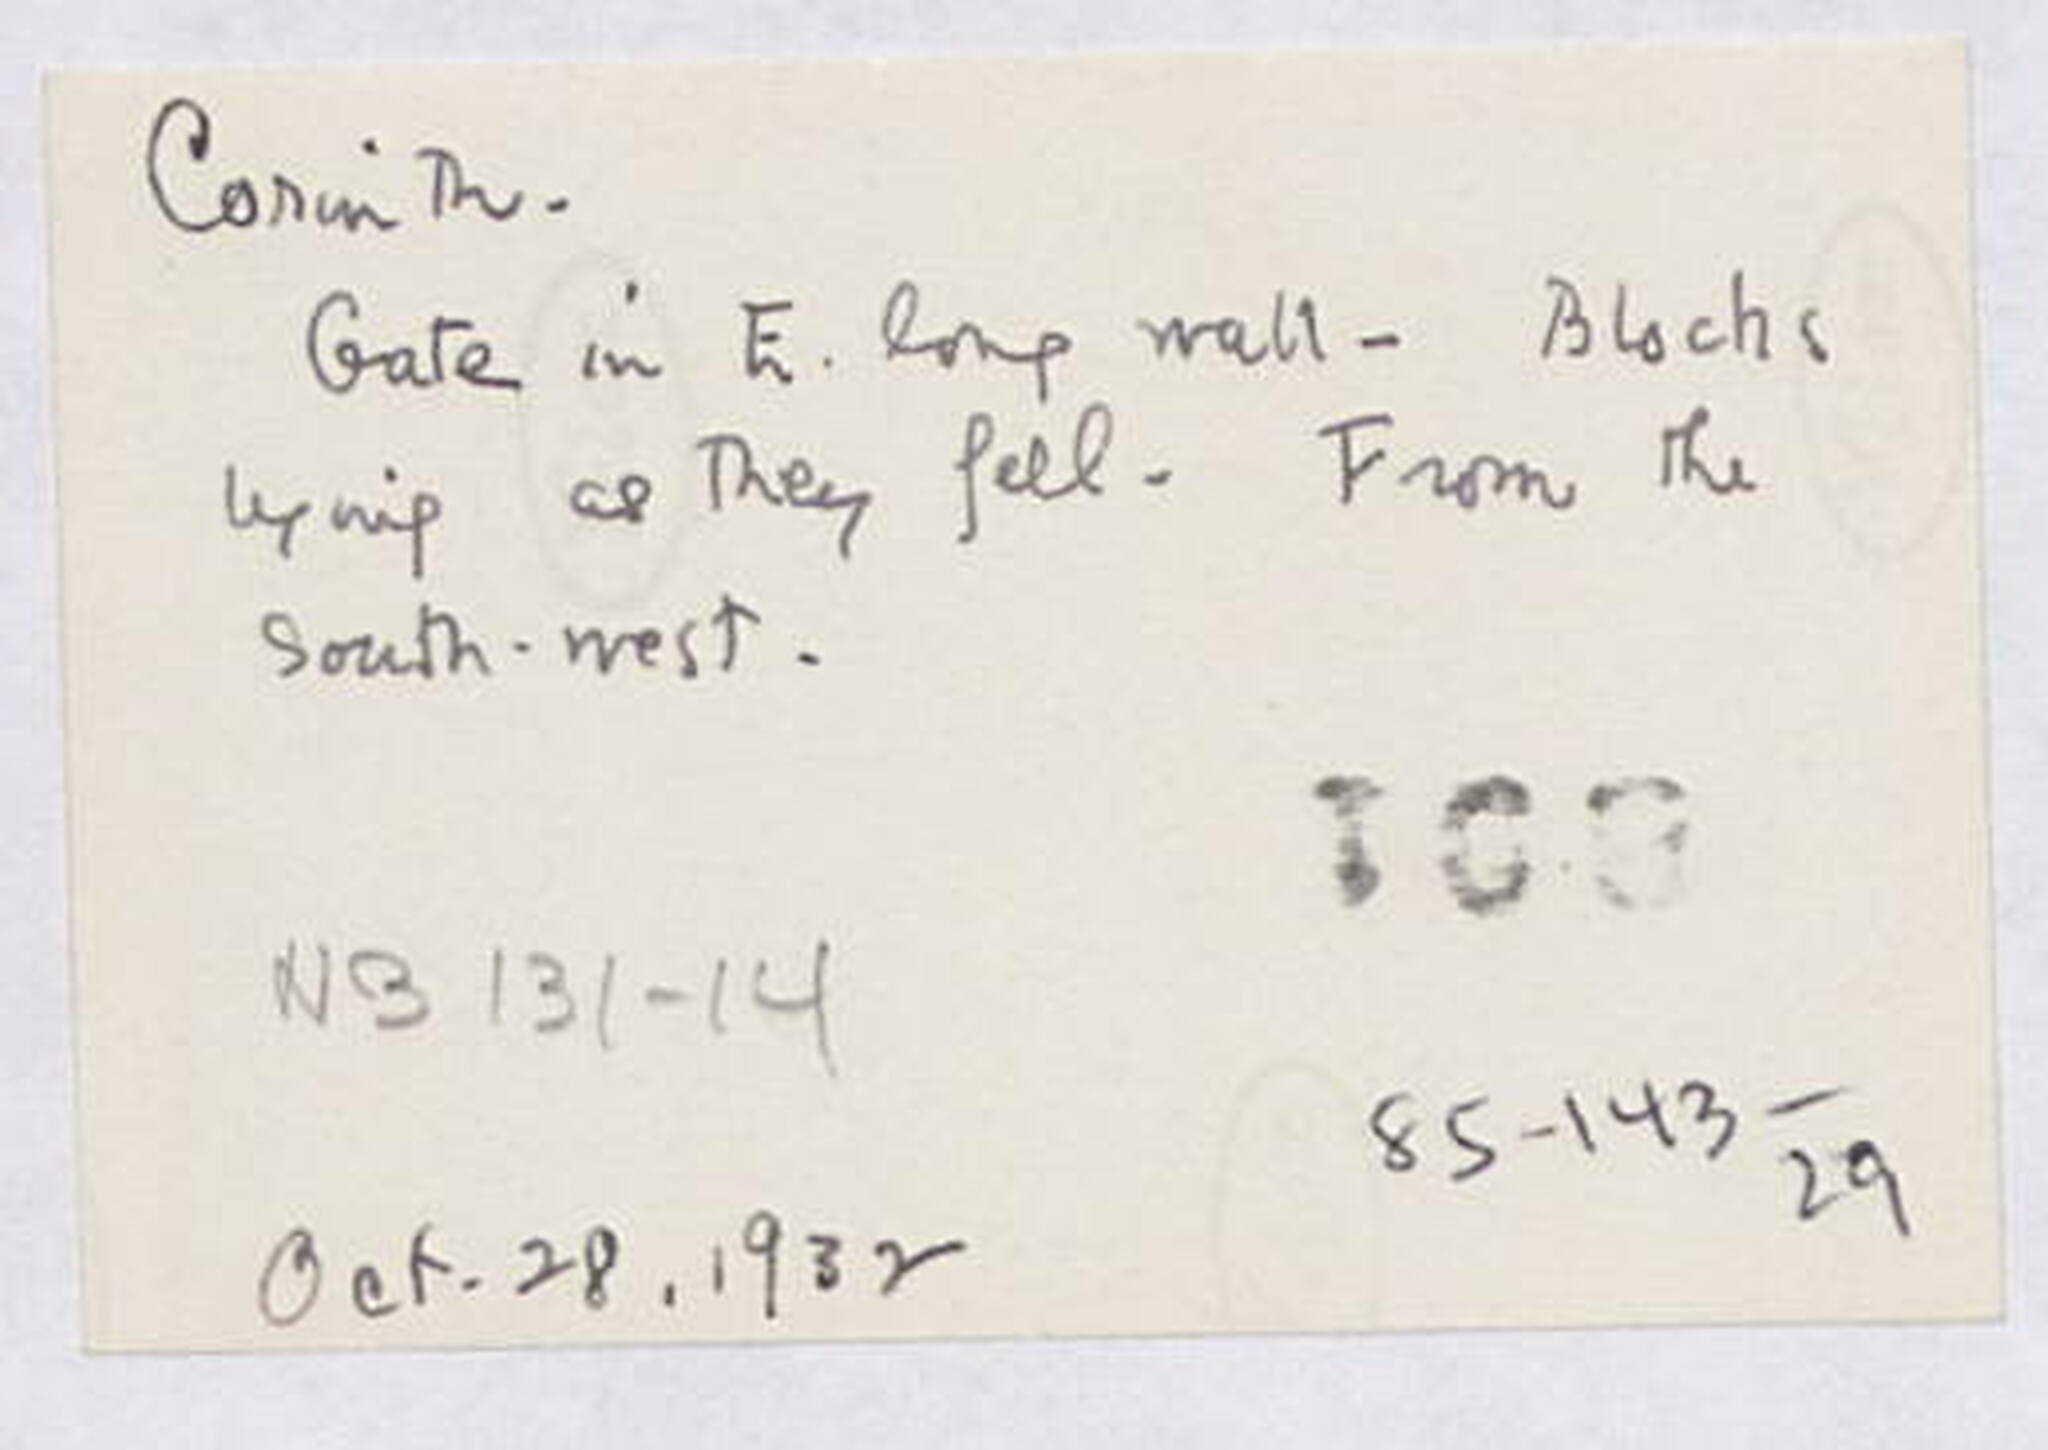 Corinth.
Gate in E. long wall - Blocks
lying as they fell - From the
South-west.
NB 131-14
85-143-
29
Oct. 28, 1932